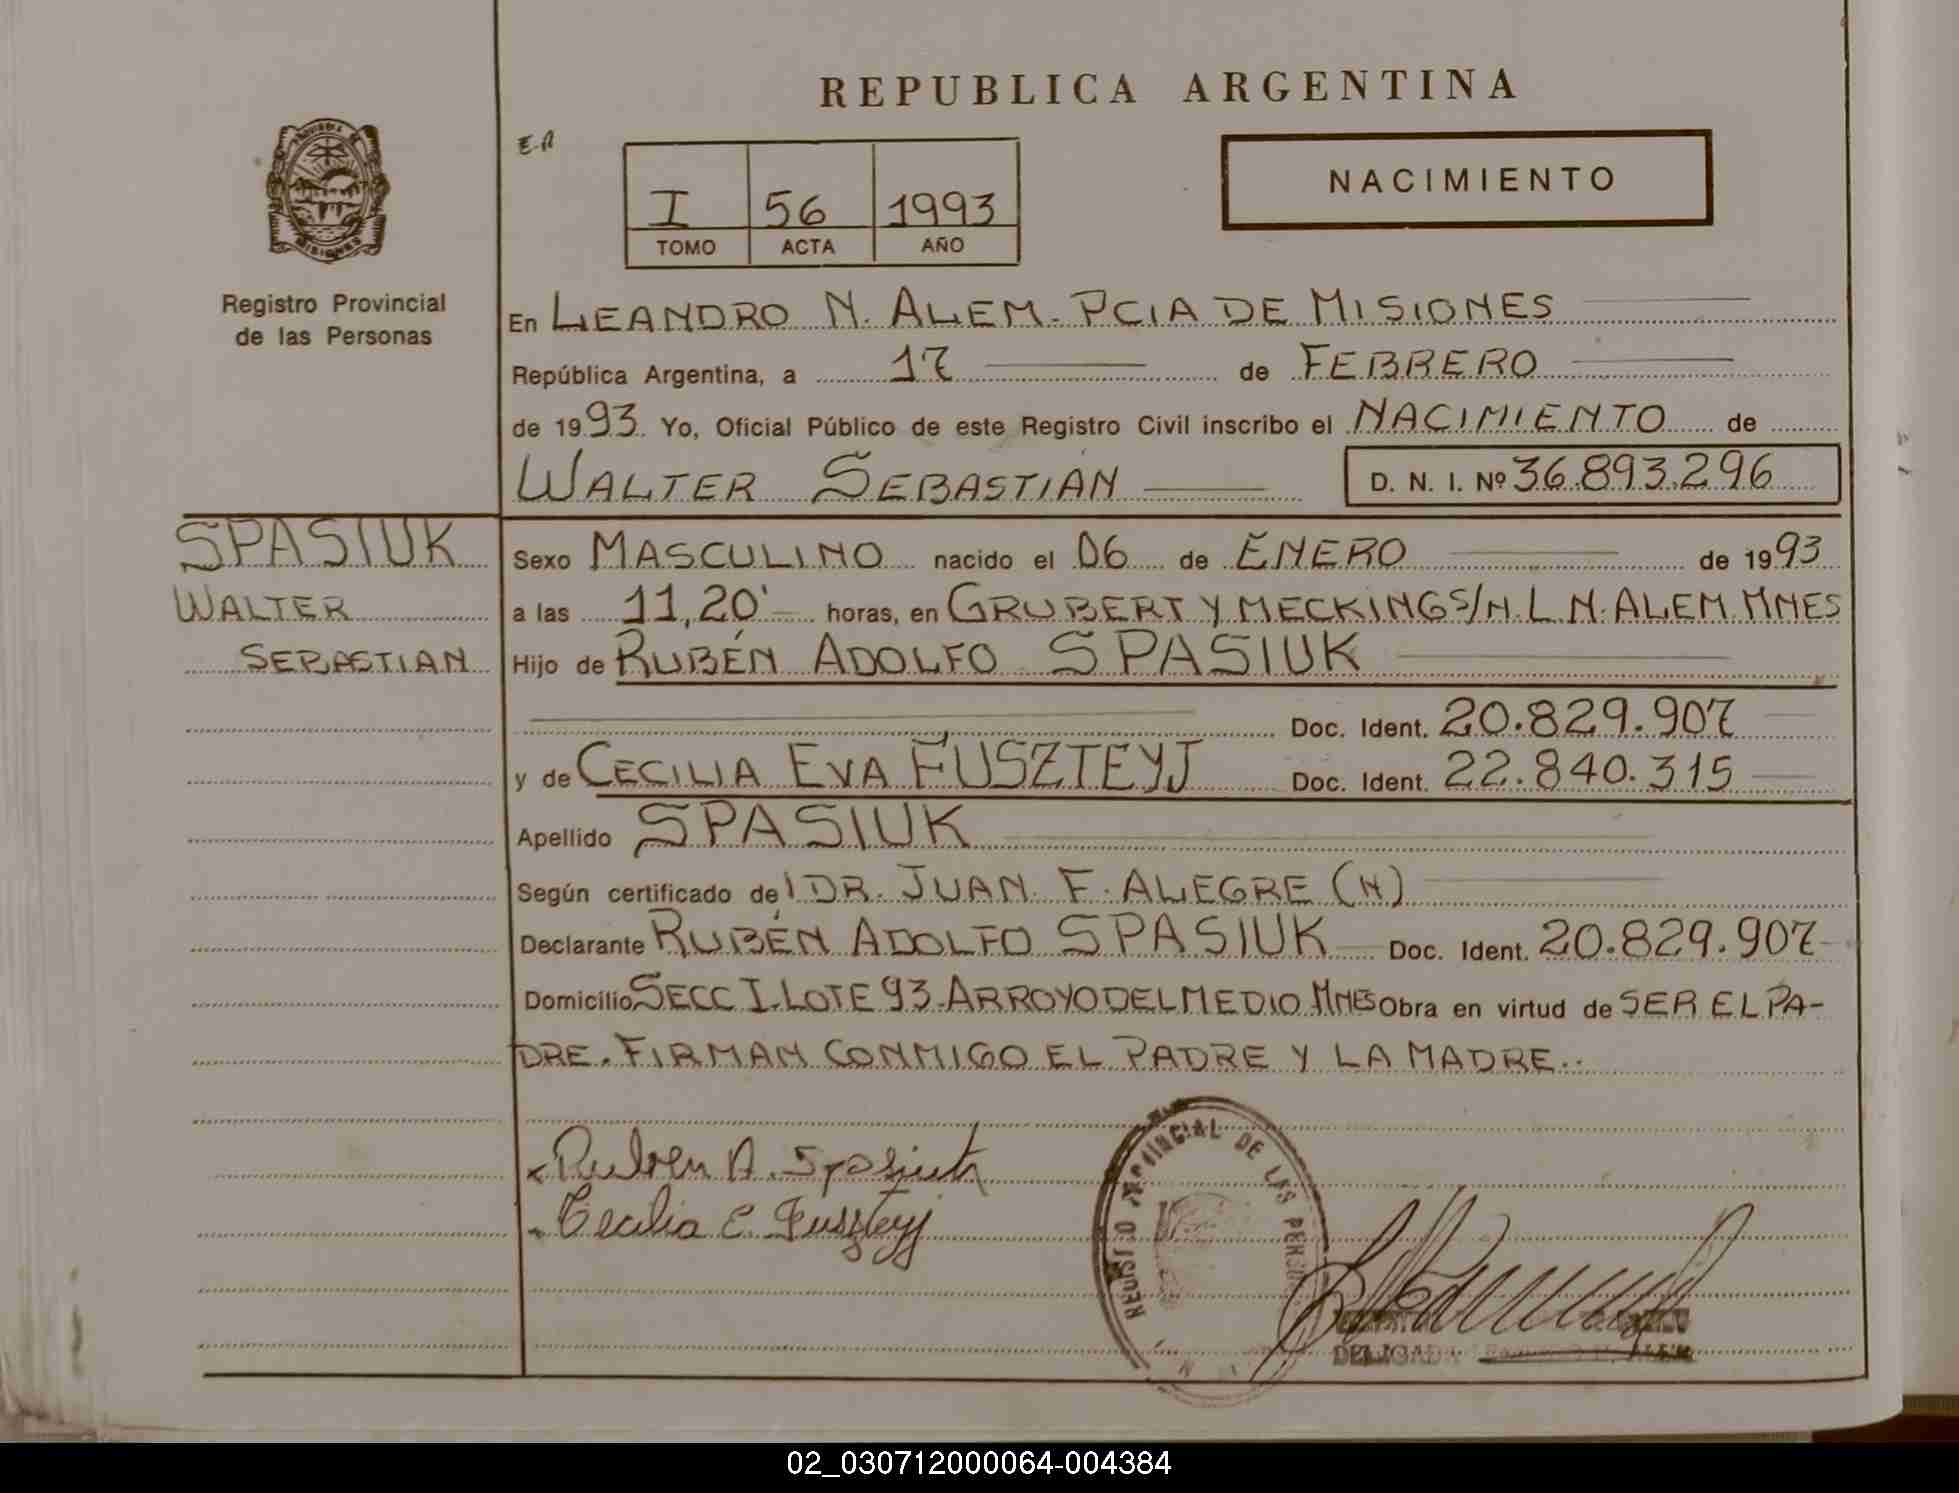 REPUBLICA ARGENTINA
E.A
NACIMIENTO
I 56 1993
TOMO ACTA AÑO
PROVINCIA DE
MISIONES
Registro Provincial
de las Personas
En LEANDRO N. ALEM. PCIA DE MISIONES
República Argentina, a 17 de FEBRERO
de 1993. Yo, Oficial Público de este Registro Civil inscribo el NACIMIENTO de
WALTER SEBASTIÁN D. N. I. Nº 36.893.296
SPASIUK
WALTER
SEBASTIAN
Sexo MASCULINO nacido el 06 de ENERO de 1993
a las 11,20' horas, en GRUBERT Y MECKINGS/N.L.N.ALEM.MNES
Hijo de RUBÉN ADOLFO SPASIUK
Doc. Ident. 20.829.907
y de CECILIA EVA FUSZTEYJ Doc. Ident. 22.840.315
Apellido SPASIUK
Según certificado del DR. JUAN F. ALEGRE (N)
Declarante RUBÉN ADOLFO SPASIUK Doc. Ident. 20.829.907
Domicilio SECC I. LOTE 93. ARROYO DEL MEDIO. MNES Obra en virtud de SER EL PA-
DRE. FIRMAN CONMIGO EL PADRE Y LA MADRE..
Ruben A. Spasiuk
Cecilia E. Fuszteyj
REGISTRO PROVINCIAL DE LAS PERSO
02_030712000064-004384